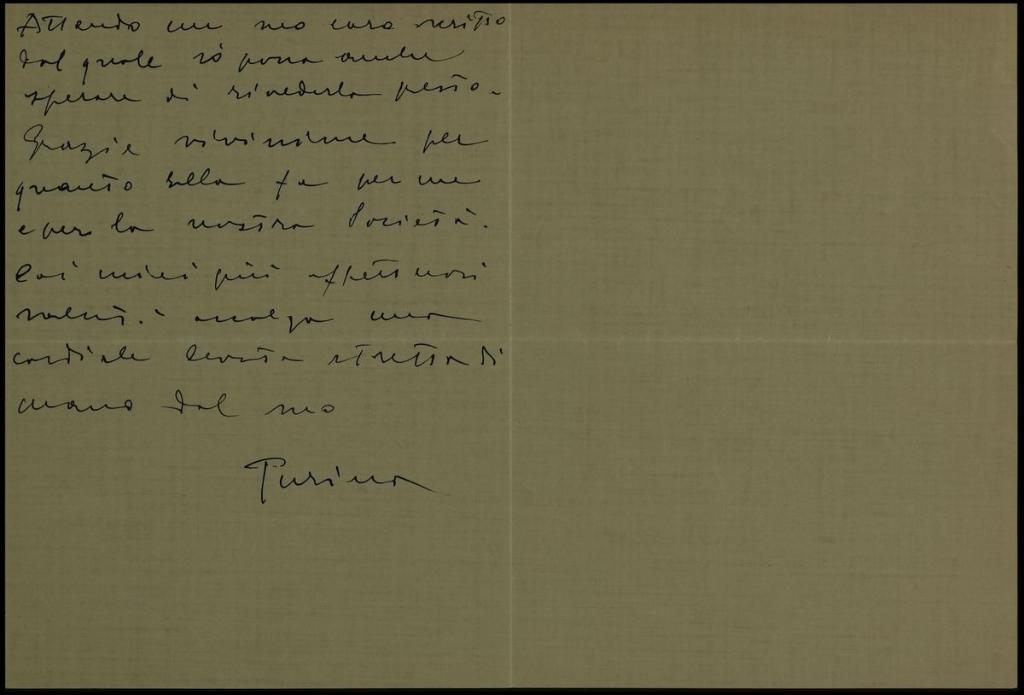 Attendo un suo caro scritto
dal quale io possa anche
sperare di rivederla presto.
Grazie vivissime per
quanto Ella fa per me
e per la nostra Società.
Coi miei più affettuosi
saluti accolga una
cordiale devota stretta di
mano dal suo